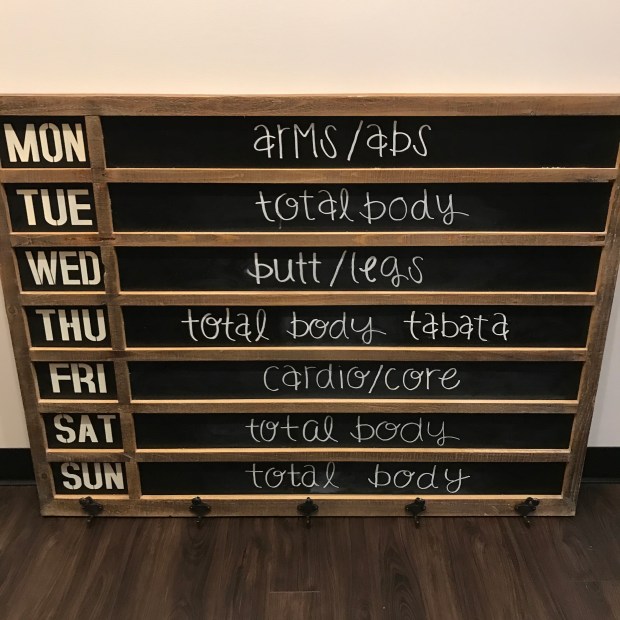 MON arms/abs
TUE total body
WED butt/legs
THU total body tabata
FRI cardio/core
SAT total body
SUN total body